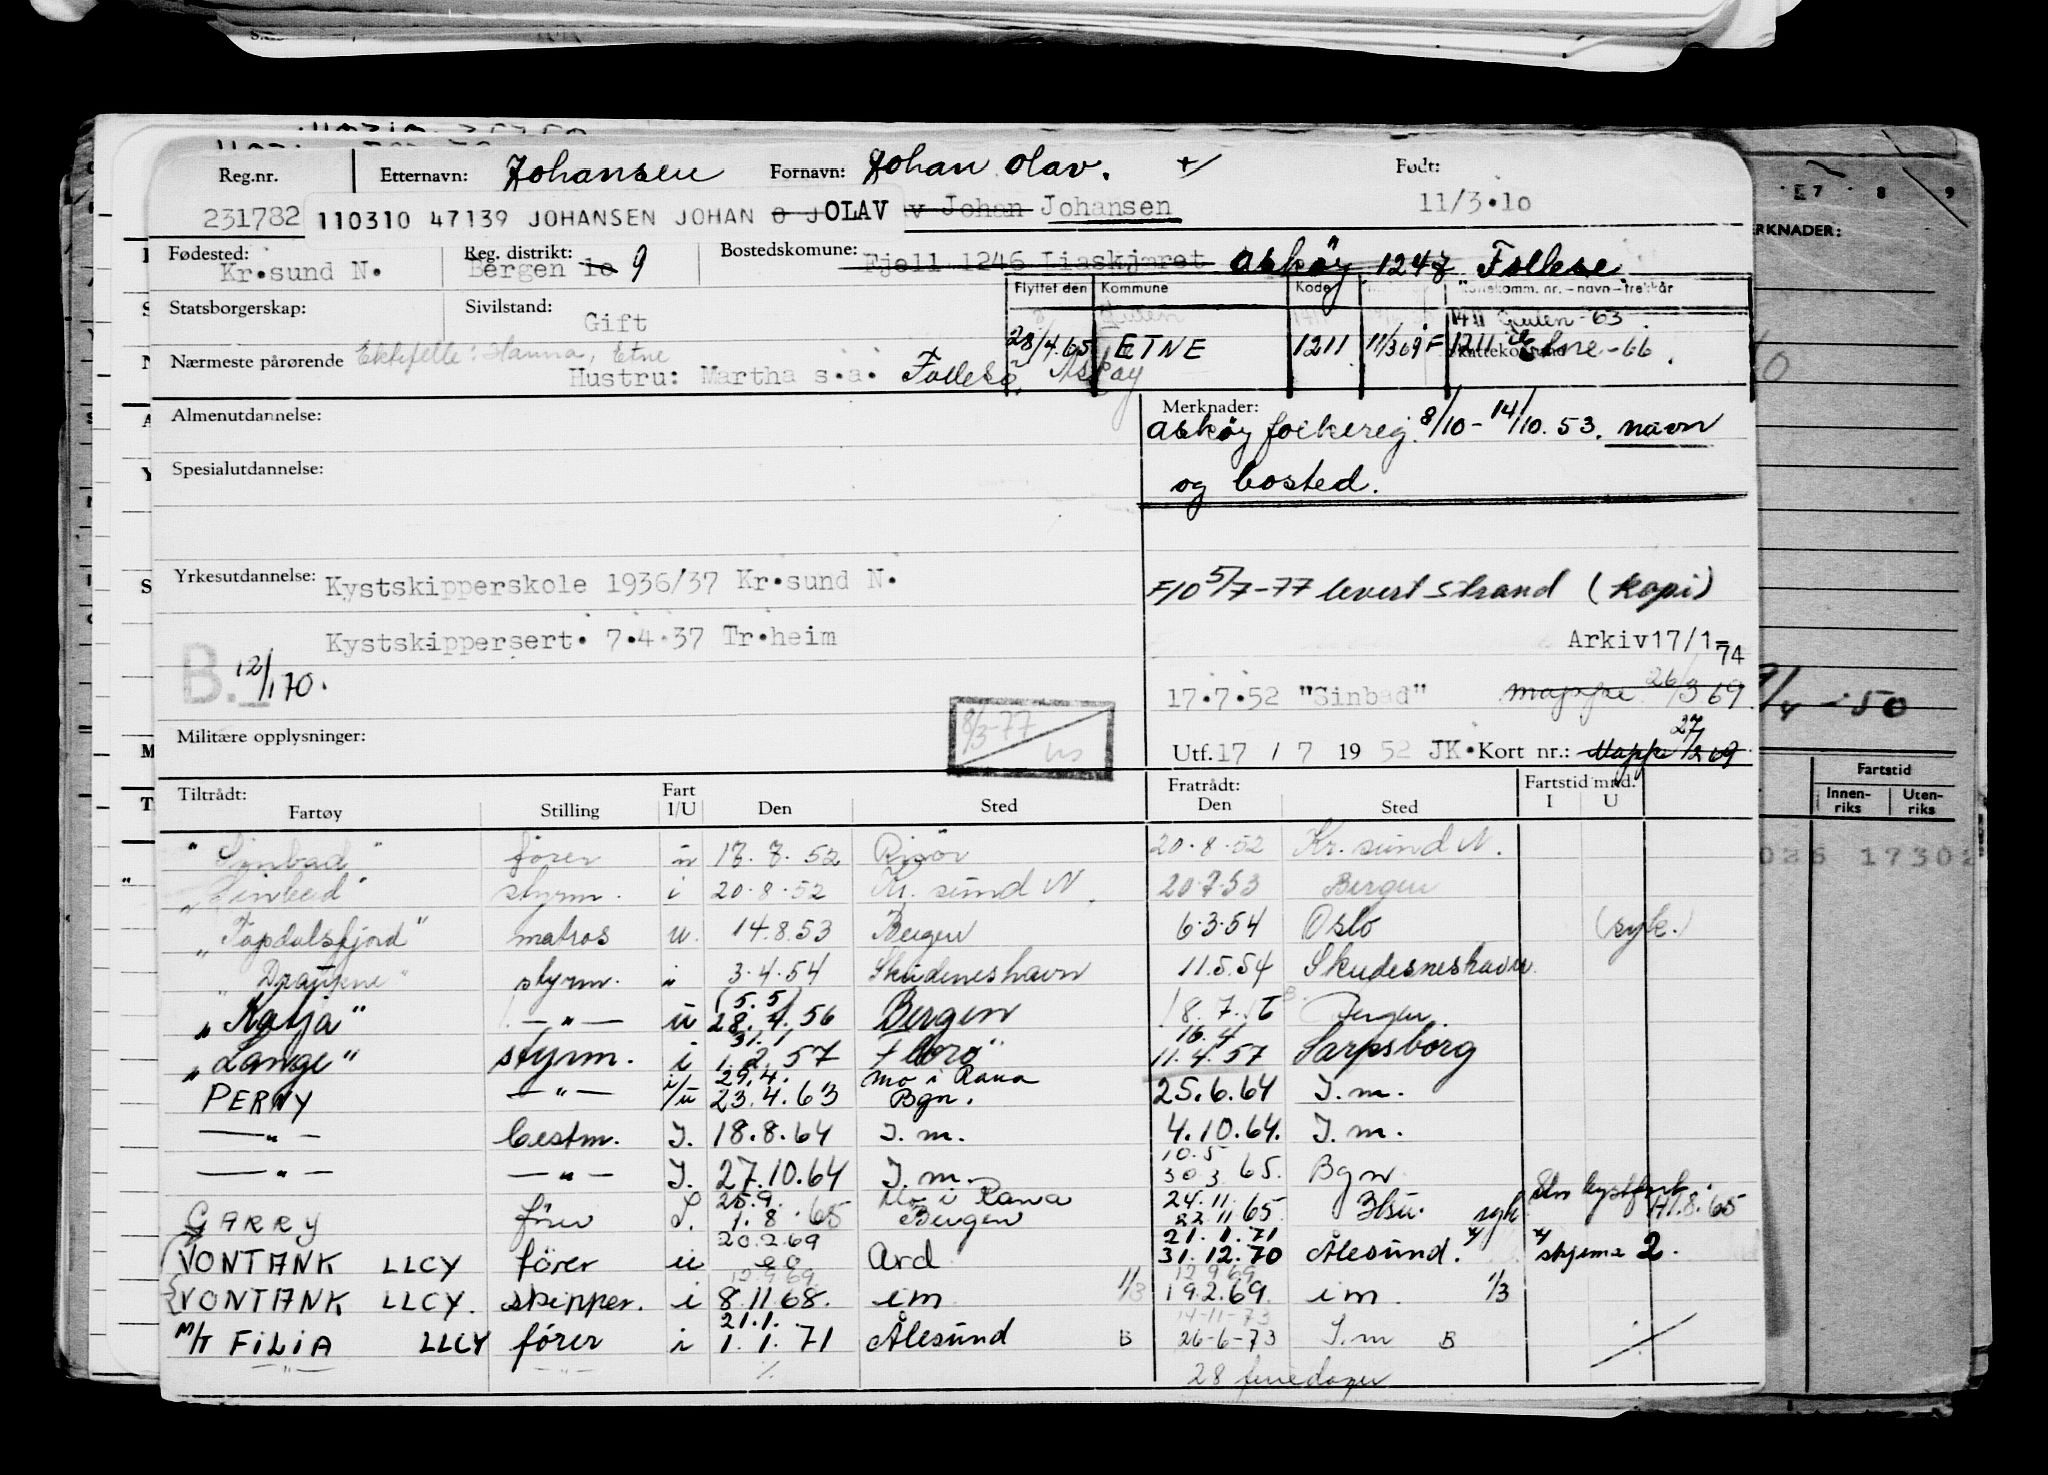 Reg.nr. Etternavn: Johansen Fornavn: Johan Olav. Født:
231782 110310 47139 JOHANSEN JOHAN O J OLAV av Johan Johansen 11/3.10
Fødested: Kr.sund N. Reg. distrikt: Bergen 10 9 Bostedskommune: Fjell 1246 Liaskjæret Askøy 1247 Follese
Flyttet den Kommune Kode skattekomm. nr. – navn – trekkår
Statsborgerskap: Sivilstand: Gift
1411 Gulen - 63
28/4.65 ETNE 1211 11/3 69 F 1211 Etne - 66.
Nærmeste pårørende Ektefelle: Hanna, Etne
Hustru: Martha s.a. Follesø, Askøy
Almenutdannelse: Merknader:
Askøy folkereg. 8/10 - 14/10.53. navn
og bosted.
Spesialutdannelse:
Yrkesutdannelse: Kystskipperskole 1936/37 Kr.sund N.
F10 5/7-77 levert Strand (kopi)
Kystskippersert. 7.4.37 Tr.heim Arkiv 17/1-74
B. 12/1 70.
17.7.52 "Sinbad" mappe 26/3 69
8/3-77
Militære opplysninger:
Utf. 17 / 7 19 52 JK. Kort nr.: Mappe 27/2 69
Tiltrådt: Fartøy Stilling Fart I/U Den Sted Fratrådt: Den Sted Fartstid mnd. I U
"Sinbad" fører u 18.7.52 Risør 20.8.52 Kr. sund N.
"Sinbad" styrm. i 20.8.52 Kr. sund N. 20.7.53 Bergen
"Topdalsfjord" matros u. 14.8.53 Bergen 6.3.54 Oslo (syk.)
"Draupne" styrm. i 3.4.54 Skudeneshavn 11.5.54 Skudesneshavn
"Katja" — " — u (5.5) 28.4.56 Bergen 18.7.56 Bergen.
"Lange" styrm. i 31.1 1.2.57 Florø 16.4 11.4.57 Sarpsborg
PERNY — " — i/u 29.4. 23.4.63 Mo i Rana Bgn. 25.6.64 I.m.
— " — bestm. I. 18.8.64 I.m. 4.10.64. I.m.
— " — — " — I. 27.10.64 I.m. 10.5 30.3 65. Bgn
GARRY fører I. 25.9. 1.8.65 Mo i Rana Bergen 24.11. 22.11 65 Hsu. syk 41.8.65
VONTANK LLCY fører u 20.2.69 Ard 21.1.71 31.12.70 Ålesund. skjema 2.
VONTANK LLCY. skipper. i 12.9.69 8.11 68. im 1/3 12.9.69 19.2.69. im. 1/3
M/T FILIA LLCY fører i 21.1. 1.1.71 Ålesund B 14-11-73 26-6-73 I.m B
— " — — " — 28 feriedager
RKNADER:
E 7 8 9
Fartstid
Innen-riks Uten-riks